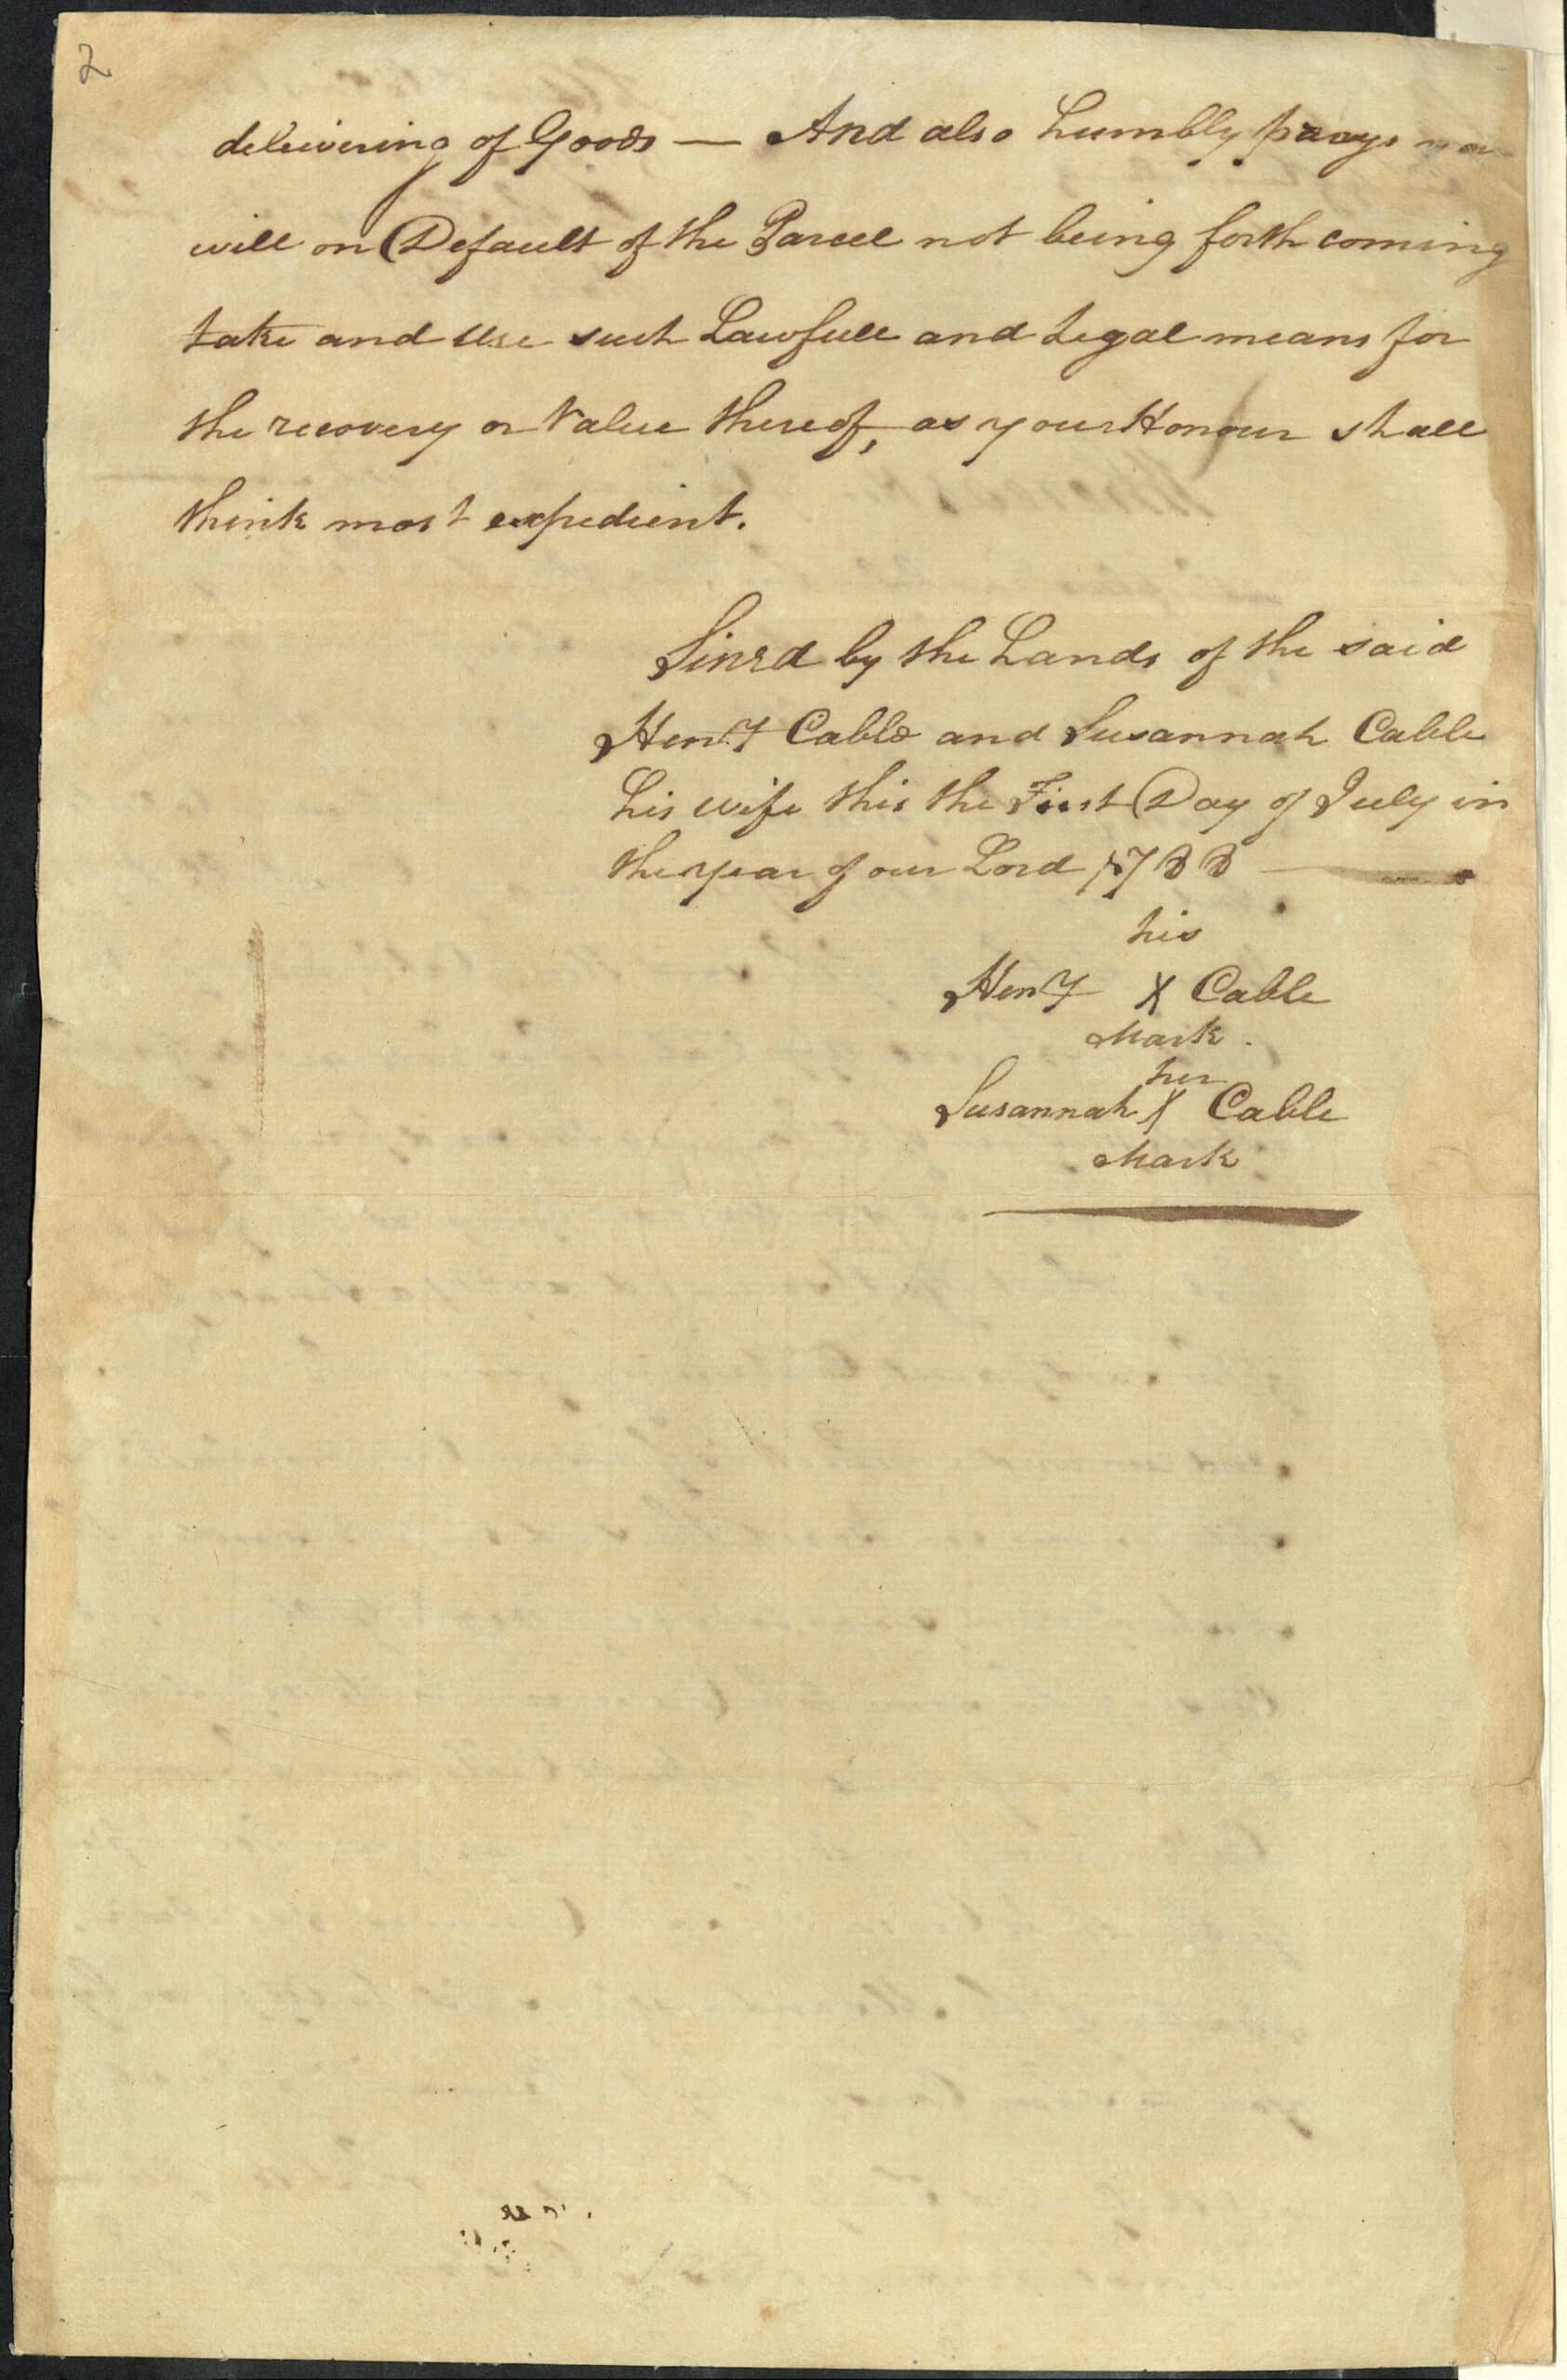 2
deleivering of Goods — And also humbly prays you
will on Default of the Parcel not being forth coming
take and Use such Lawfull and Legal means for
the recovery or Value thereof, as your Honour shall
think most expedient.
Sined by the Hands of the said
Heny Cable and Susannah Cable
his wife this the First Day of July in
the year of our Lord 1788
his
Heny X Cable
Mark.
her
Susannah X Cable
Mark